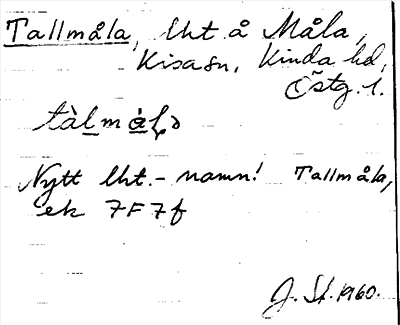 Tallmåla, lht å Måla,
Kisa sn, Kinda hd,
Östg. l.
tàlmå̀ḷə
Nytt lht.-namn! Tallmåla,
ek 7F7f
J. St. 1960.